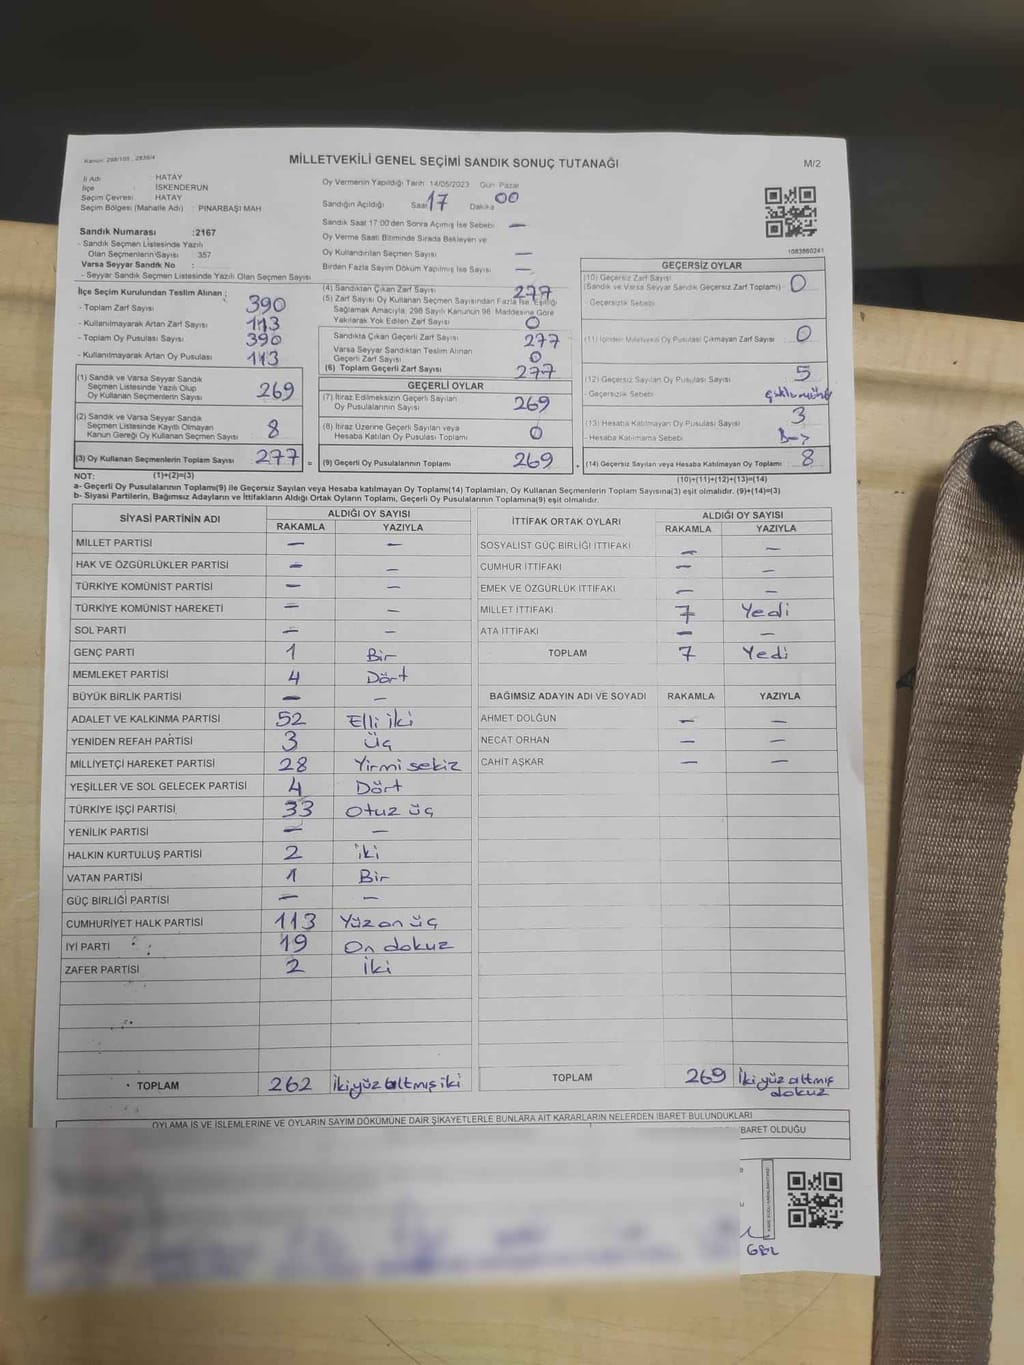 Kanun: 298/105 , 2839/4
MİLLETVEKİLİ GENEL SEÇİMİ SANDIK SONUÇ TUTANAĞI
M/2
İl Adı : HATAY
İlçe : İSKENDERUN
Seçim Çevresi : HATAY
Seçim Bölgesi (Mahalle Adı) : PINARBAŞI MAH
Sandık Numarası :2167
- Sandık Seçmen Listesinde Yazılı
Olan Seçmenlerin Sayısı : 357
Varsa Seyyar Sandık No :
- Seyyar Sandık Seçmen Listesinde Yazılı Olan Seçmen Sayısı
Oy Vermenin Yapıldığı Tarih 14/05/2023 Gün Pazar
Sandığın Açıldığı Saat 17 Dakika 00
Sandık Saat 17:00'den Sonra Açılmış İse Sebebi —
Oy Verme Saati Bitiminde Sırada Bekleyen ve
Oy Kullandırılan Seçmen Sayısı —
Birden Fazla Sayım Döküm Yapılmış İse Sayısı —
1083860241
İlçe Seçim Kurulundan Teslim Alınan ;
- Toplam Zarf Sayısı 390
- Kullanılmayarak Artan Zarf Sayısı 113
- Toplam Oy Pusulası Sayısı 390
- Kullanılmayarak Artan Oy Pusulası 113
(1) Sandık ve Varsa Seyyar Sandık
Seçmen Listesinde Yazılı Olup
Oy Kullanan Seçmenlerin Sayısı 269
(2) Sandık ve Varsa Seyyar Sandık
Seçmen Listesinde Kayıtlı Olmayan
Kanun Gereği Oy Kullanan Seçmen Sayısı 8
(3) Oy Kullanan Seçmenlerin Toplam Sayısı 277 =
(4) Sandıktan Çıkan Zarf Sayısı 277
(5) Zarf Sayısı Oy Kullanan Seçmen Sayısından Fazla İse Eşitliği
Sağlamak Amacıyla; 298 Sayılı Kanunun 98. Maddesine Göre
Yakılarak Yok Edilen Zarf Sayısı 0
Sandıkta Çıkan Geçerli Zarf Sayısı 277
Varsa Seyyar Sandıktan Teslim Alınan
Geçerli Zarf Sayısı 0
(6) Toplam Geçerli Zarf Sayısı 277
GEÇERLİ OYLAR
(7) İtiraz Edilmeksizin Geçerli Sayılan
Oy Pusulalarının Sayısı 269
(8) İtiraz Üzerine Geçerli Sayılan veya
Hesaba Katılan Oy Pusulası Toplamı 0
(9) Geçerli Oy Pusulalarının Toplamı 269 +
GEÇERSİZ OYLAR
(10) Geçersiz Zarf Sayısı
(Sandık ve Varsa Seyyar Sandık Geçersiz Zarf Toplamı) 0
- Geçersizlik Sebebi
(11) İçinden Milletvekili Oy Pusulası Çıkmayan Zarf Sayısı 0
(12) Geçersiz Sayılan Oy Pusulası Sayısı 5
- Geçersizlik Sebebi
(13) Hesaba Katılmayan Oy Pusulası Sayısı 3
- Hesaba Katılmama Sebebi
(14) Geçersiz Sayılan veya Hesaba Katılmayan Oy Toplamı 8
NOT: (1)+(2)=(3)
(10)+(11)+(12)+(13)=(14)
a- Geçerli Oy Pusulalarının Toplamı(9) ile Geçersiz Sayılan veya Hesaba Katılmayan Oy Toplamı(14) Toplamları, Oy Kullanan Seçmenlerin Toplam Sayısına(3) eşit olmalıdır. (9)+(14)=(3)
b- Siyasi Partilerin, Bağımsız Adayların ve İttifakların Aldığı Ortak Oyların Toplamı, Geçerli Oy Pusulalarının Toplamına(9) eşit olmalıdır.
SİYASİ PARTİNİN ADI ALDIĞI OY SAYISI
RAKAMLA YAZIYLA
MİLLET PARTİSİ — —
HAK VE ÖZGÜRLÜKLER PARTİSİ — —
TÜRKİYE KOMÜNİST PARTİSİ — —
TÜRKİYE KOMÜNİST HAREKETİ — —
SOL PARTİ — —
GENÇ PARTİ 1 Bir
MEMLEKET PARTİSİ 4 Dört
BÜYÜK BİRLİK PARTİSİ — —
ADALET VE KALKINMA PARTİSİ 52 Elli iki
YENİDEN REFAH PARTİSİ 3 üç
MİLLİYETÇİ HAREKET PARTİSİ 28 Yirmi sekiz
YEŞİLLER VE SOL GELECEK PARTİSİ 4 Dört
TÜRKİYE İŞÇİ PARTİSİ 33 Otuz üç
YENİLİK PARTİSİ — —
HALKIN KURTULUŞ PARTİSİ 2 iki
VATAN PARTİSİ 1 Bir
GÜÇ BİRLİĞİ PARTİSİ — —
CUMHURİYET HALK PARTİSİ 113 Yüz on üç
İYİ PARTİ 19 On dokuz
ZAFER PARTİSİ 2 İki
TOPLAM 262 İkiyüz altmış iki
İTTİFAK ORTAK OYLARI ALDIĞI OY SAYISI
RAKAMLA YAZIYLA
SOSYALİST GÜÇ BİRLİĞİ İTTİFAKI — —
CUMHUR İTTİFAKI — —
EMEK VE ÖZGÜRLÜK İTTİFAKI — —
MİLLET İTTİFAKI 7 Yedi
ATA İTTİFAKI — —
TOPLAM 7 Yedi
BAĞIMSIZ ADAYIN ADI VE SOYADI RAKAMLA YAZIYLA
AHMET DOLĞUN — —
NECAT ORHAN — —
CAHİT AŞKAR — —
TOPLAM 269 İkiyüz altmış
dokuz
OYLAMA İŞ VE İŞLEMLERİNE VE OYLARIN SAYIM DÖKÜMÜNE DAİR ŞİKAYETLERLE BUNLARA AİT KARARLARIN NELERDEN İBARET BULUNDUKLARI
İBARET OLDUĞU